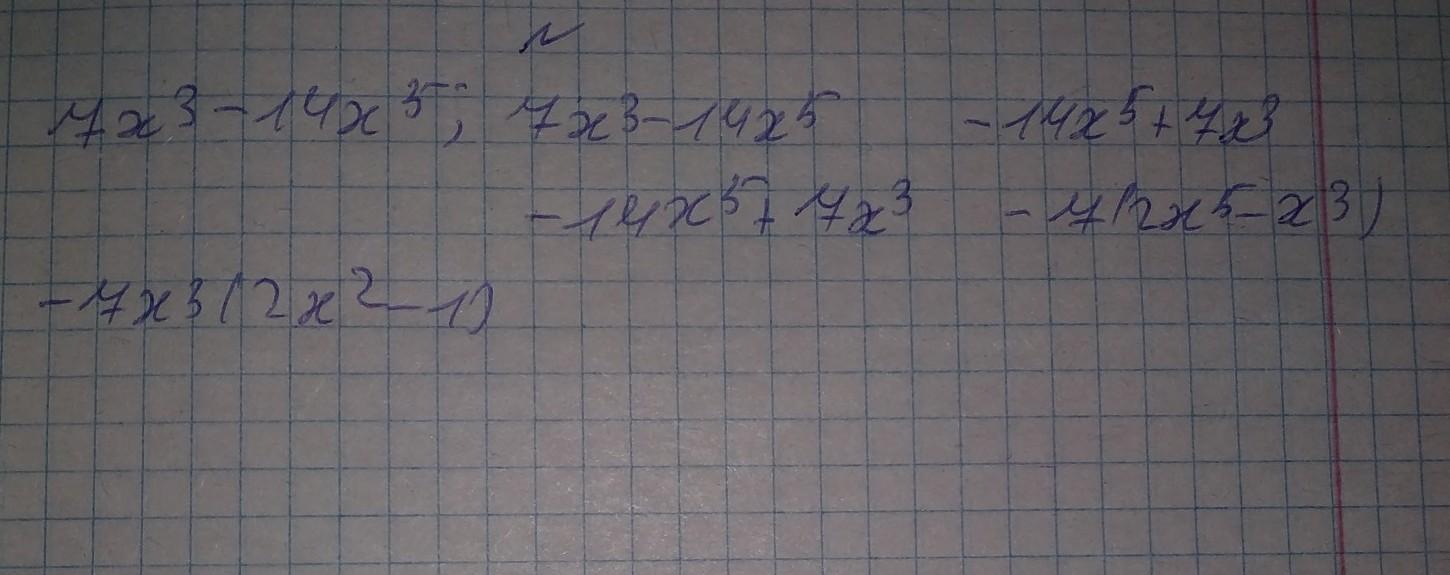 N
7x³-14x⁵; 7x³-14x⁵ -14x⁵+7x³
-14x⁵+7x³ -7(2x⁵-x³)
-7x³(2x²-1)